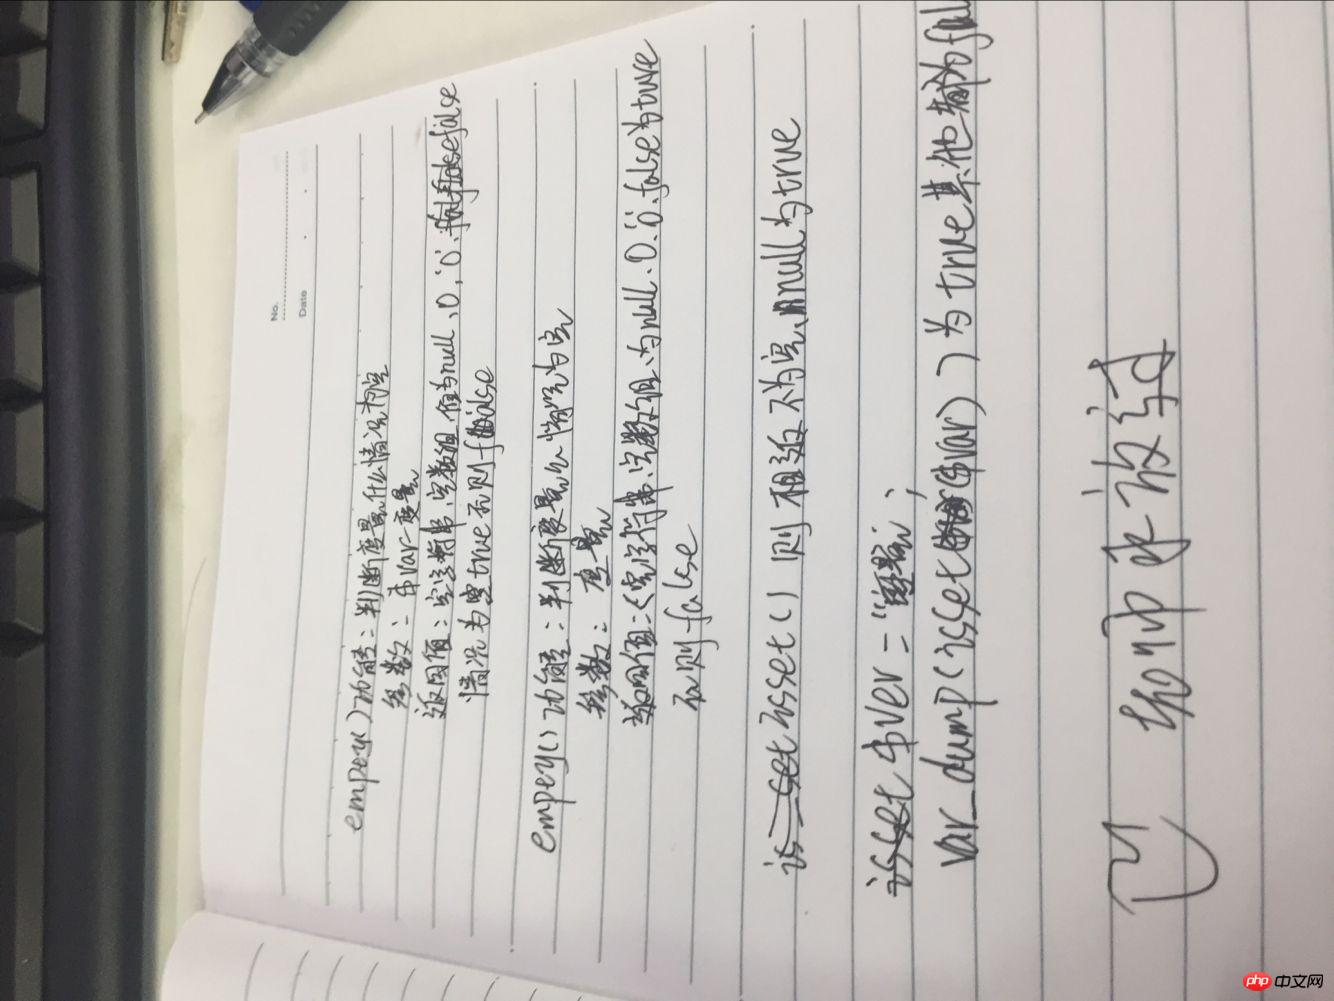 No.
Date
empey()功能:判断变量什么情况为空
参数:$var 变量
返回值:空字符串、空数组、值为null、0、'0'、false
情况为 true 否则 false
empey()功能:判断变量么情况为空
参数:变量
返回值:空字符串、空数组、为null、0、'0'、false为true
否则false
is_set isset()则相反不为空、null为true
isset $ver = "变量";
var_dump(isset($var))为true其他都为fal
php 中文网